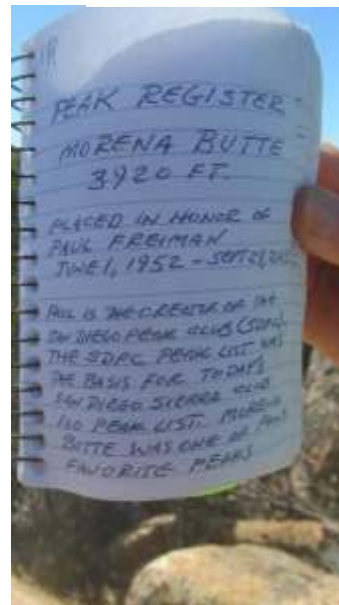 PEAK REGISTER
MORENA BUTTE
3920 FT.
PLACED IN HONOR OF
PAUL FREIMAN
JUNE 1, 1952 - SEPT
PAUL IS THE CREATOR OF THE
SAN DIEGO PEAK CLUB (SDPC).
THE SDPC PEAK LIST WAS
THE BASIS FOR TODAY'S
SAN DIEGO SIERRA CLUB
100 PEAK LIST. MORENA
BUTTE WAS ONE OF PAUL'S
FAVORITE PEAKS